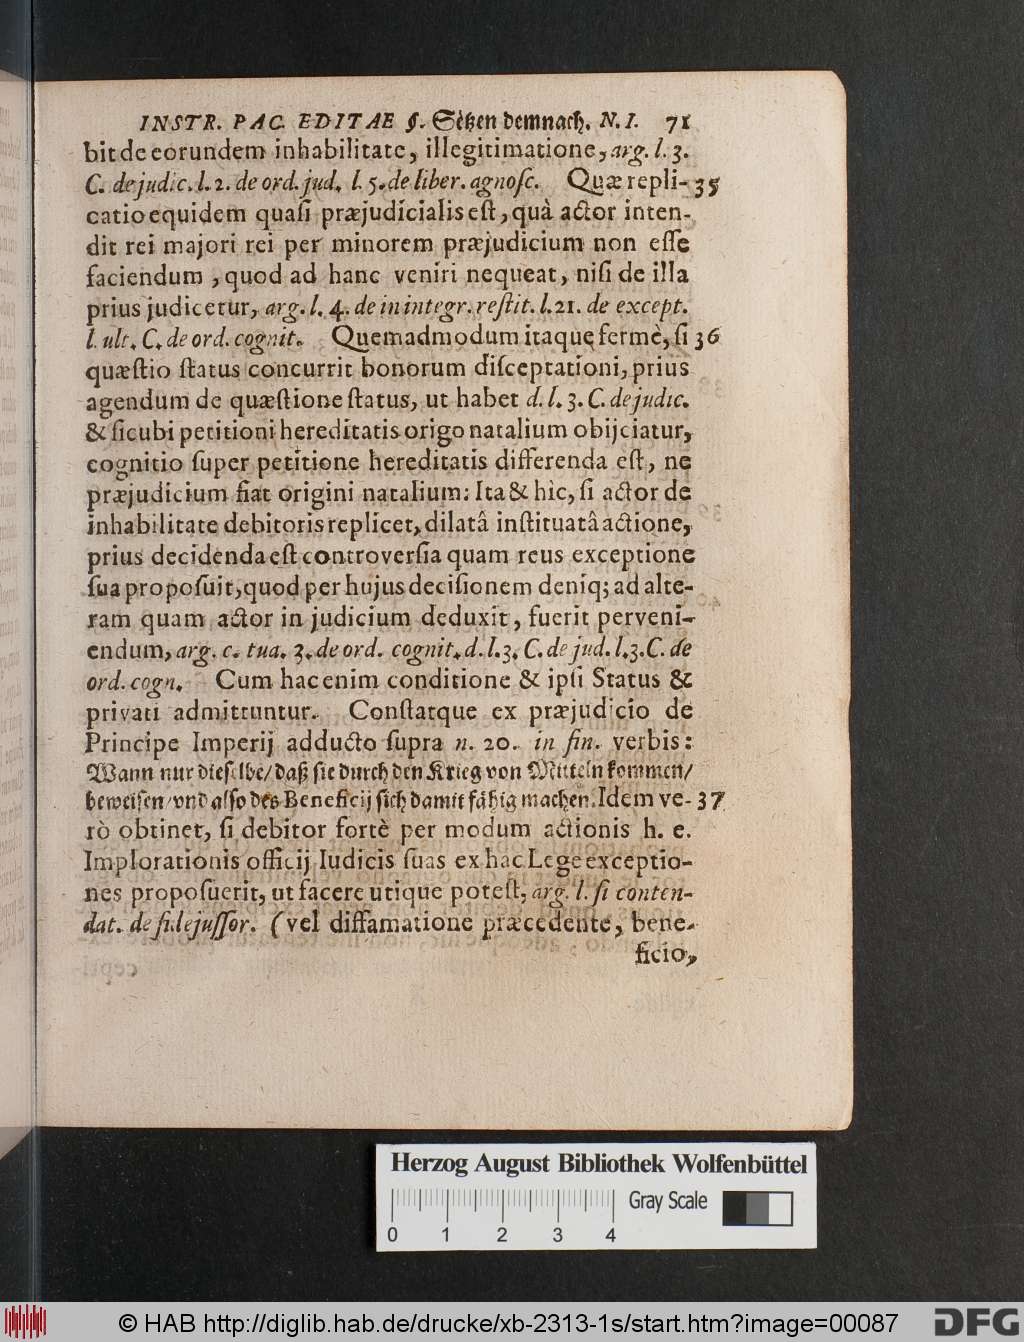 INSTR. PAC. EDITAE §. Setzen demnach. N. I. 71
bit de eorundem inhabilitate, illegitimatione, arg. l. 3.
C. de judic. l. 2. de ord. jud. l. 5. de liber. agnoſc. Quæ repli- 35
catio equidem quaſi præjudicialis eſt, quà actor inten-
dit rei majori rei per minorem præjudicium non eſſe
faciendum, quod ad hanc veniri nequeat, niſi de illa
prius judicetur, arg. l. 4. de in integr. reſtit. l. 21. de except.
l. ult. C. de ord. cognit. Quemadmodum itaque fermè, ſi 36
quæſtio ſtatus concurrit bonorum diſceptationi, prius
agendum de quæſtione ſtatus, ut habet d. l. 3. C. de judic.
& ſicubi petitioni hereditatis origo natalium obijciatur,
cognitio ſuper petitione hereditatis differenda eſt, ne
præjudicium fiat origini natalium: Ita & hìc, ſi actor de
inhabilitate debitoris replicet, dilatâ inſtituatâ actione,
prius decidenda eſt controverſia quam reus exceptione
ſua propoſuit, quod per hujus deciſionem deniq; ad alte-
ram quam actor in judicium deduxit, fuerit perveni-
endum, arg. c. tua. 3. de ord. cognit. d. l. 3. C. de jud. l. 3. C. de
ord. cogn. Cum hac enim conditione & ipſi Status &
privati admittuntur. Conſtatque ex præjudicio de
Principe Imperij adducto ſupra n. 20. in fin. verbis:
Wann nur dieſelbe/ daß ſie durch den Krieg von Mitteln kommen/
beweiſen/ vnd alſo des Beneficij ſich damit fähig machen. Idem ve- 37
rò obtinet, ſi debitor fortè per modum actionis h. e.
Implorationis officij Iudicis ſuas ex hac Lege exceptio-
nes propoſuerit, ut facere utique poteſt, arg. l. ſi conten-
dat. de fidejuſſor. (vel diffamatione præcedente, bene-
ficio,
Herzog August Bibliothek Wolfenbüttel
Gray Scale
0 1 2 3 4
© HAB http://diglib.hab.de/drucke/xb-2313-1s/start.htm?image=00087
DFG